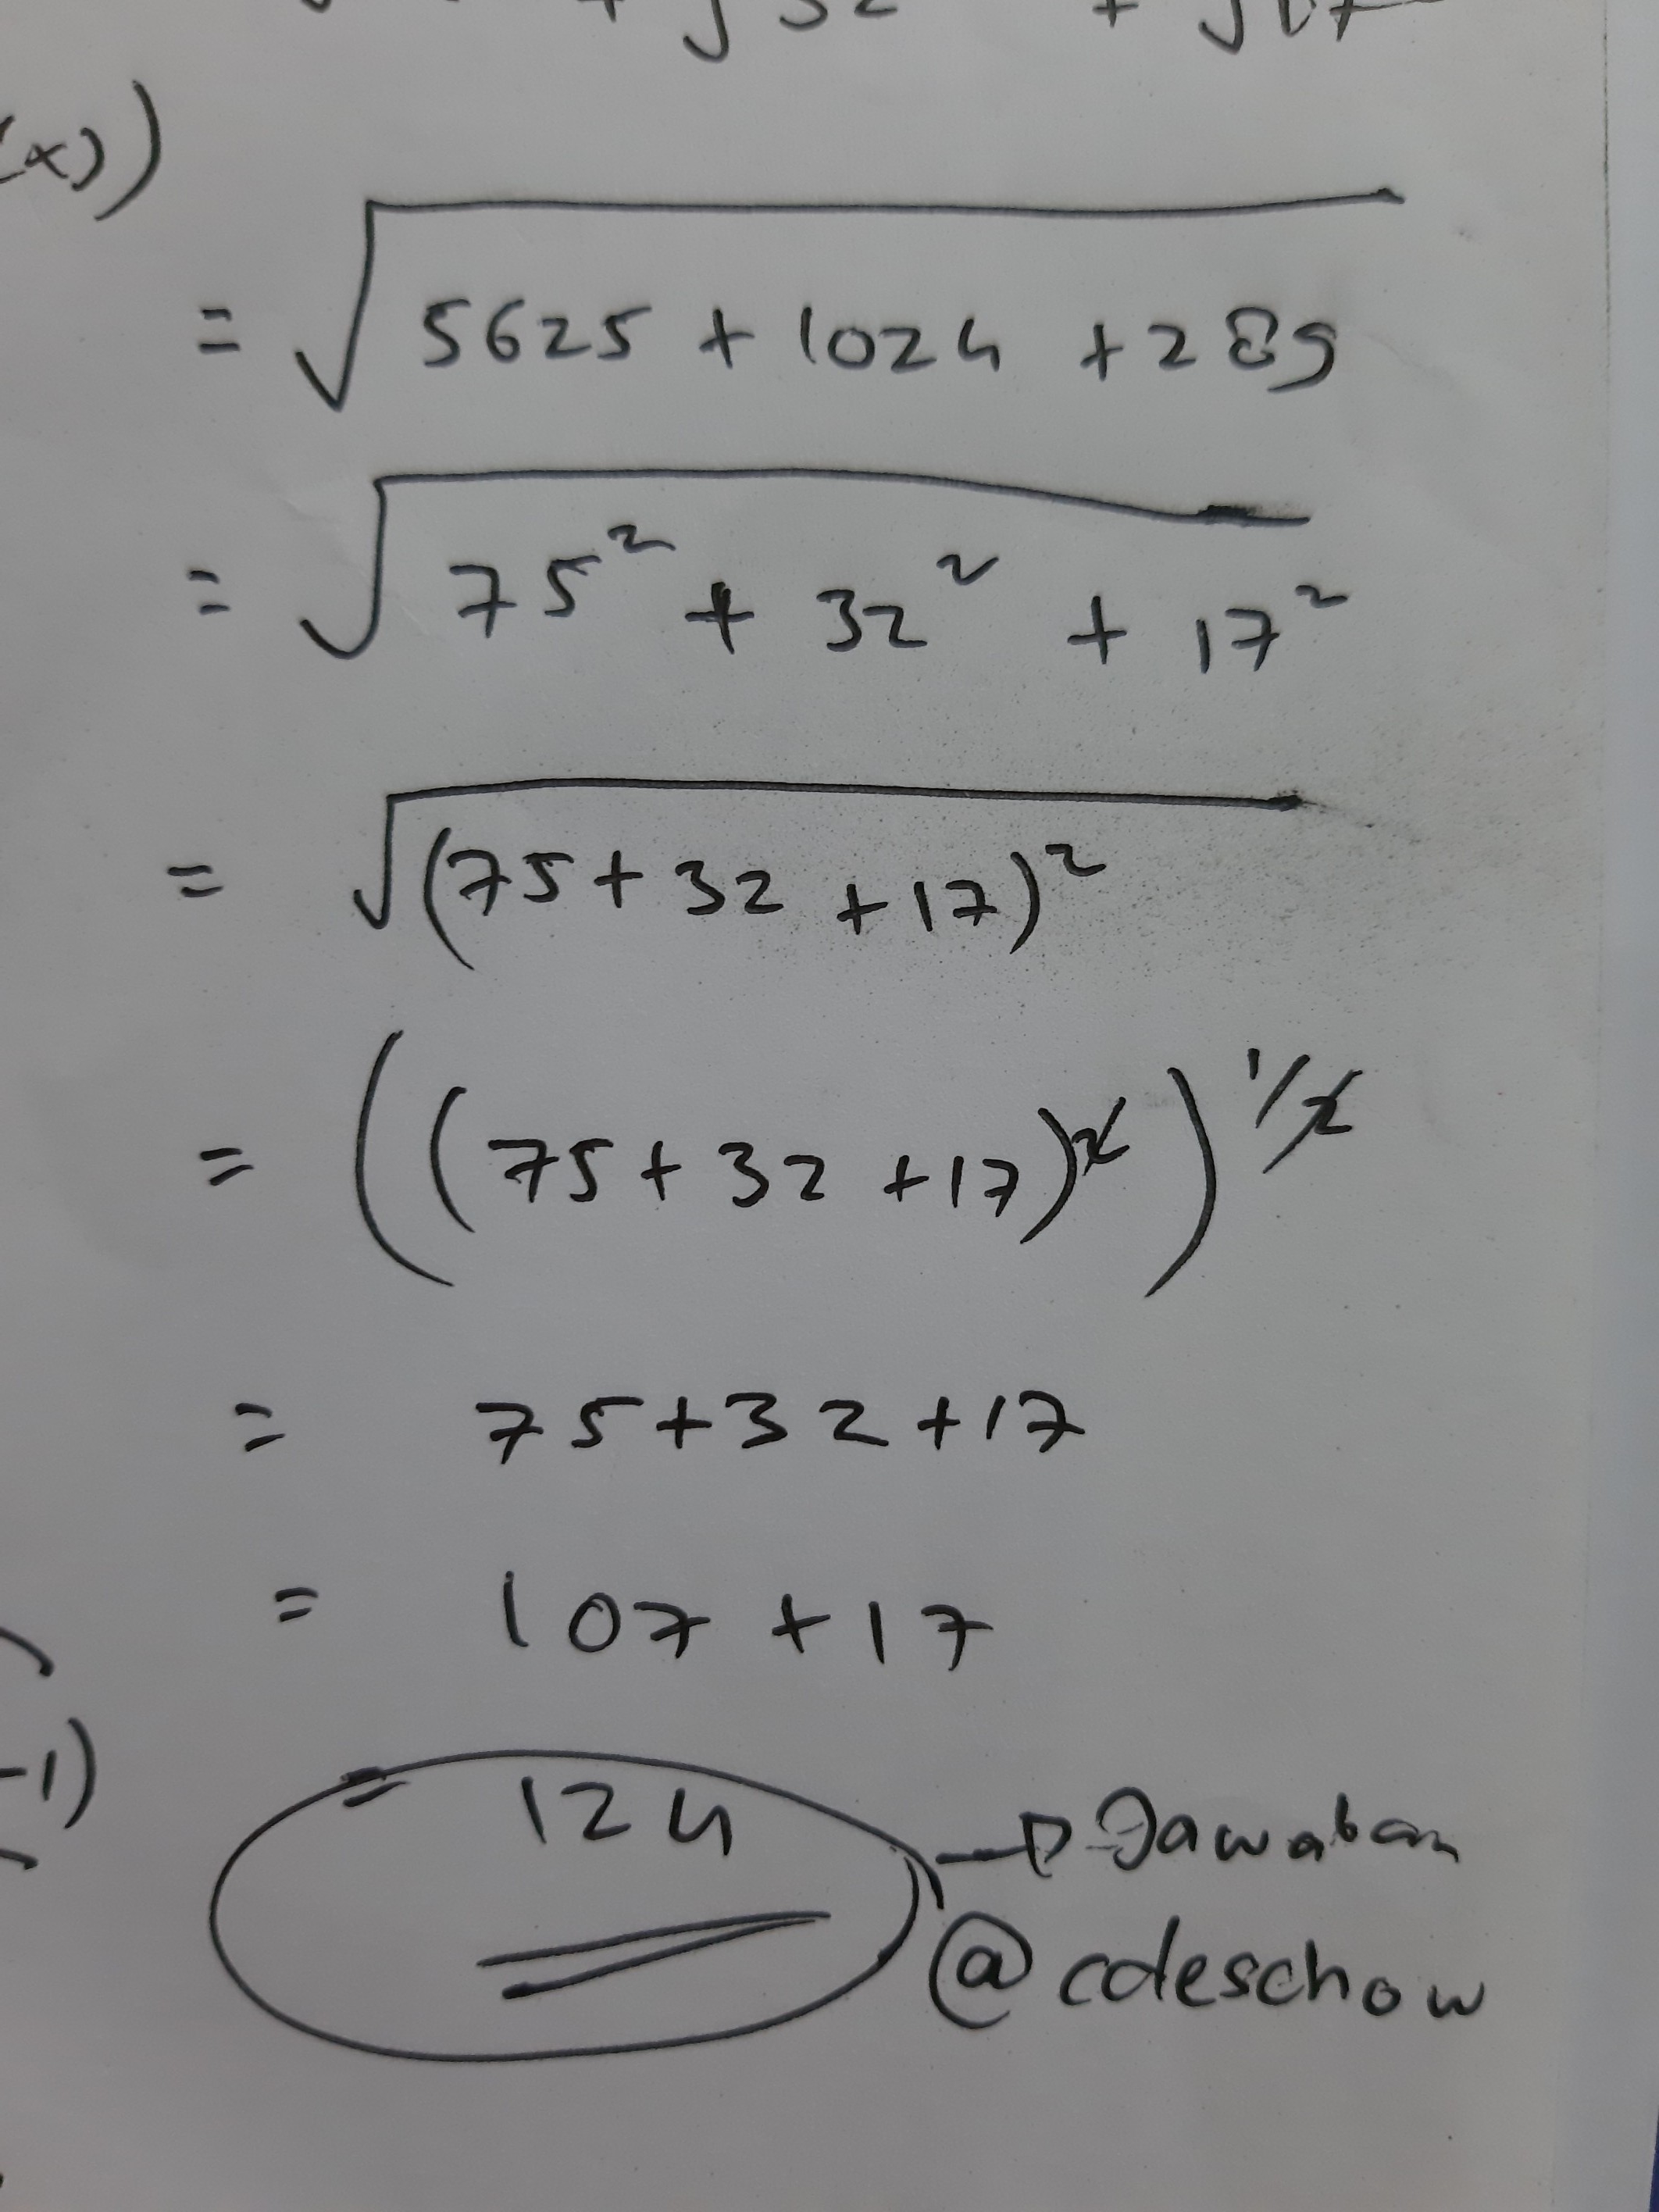 (x))
= √5625 + 1024 + 289
= √75² + 32² + 17²
= √(75 + 32 + 17)²
= ((75 + 32 + 17)²)^1/2
= 75 + 32 + 17
= 107 + 17
-1)
= 124 → Jawaban
@cdeschow